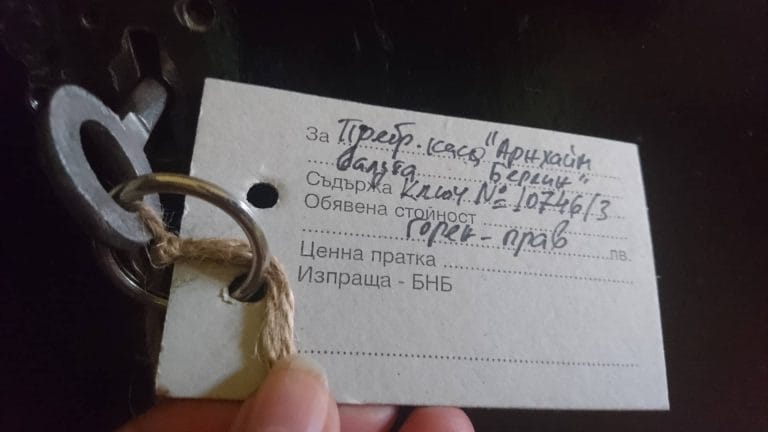 За Требр. каса "Арнхайм
валута Берлин"
Съдържа ключ № 10746/3
Обявена стойност
горен - прав лв.
Ценна пратка
Изпраща - БНБ